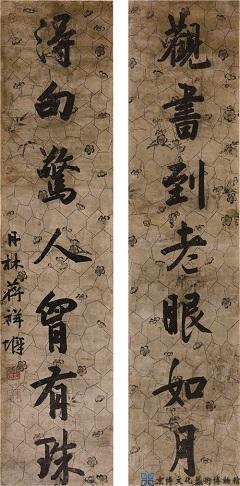 觀書到老眼如月
得句驚人胷有珠
丹林蔣祥墀
京博文化藝術博物館